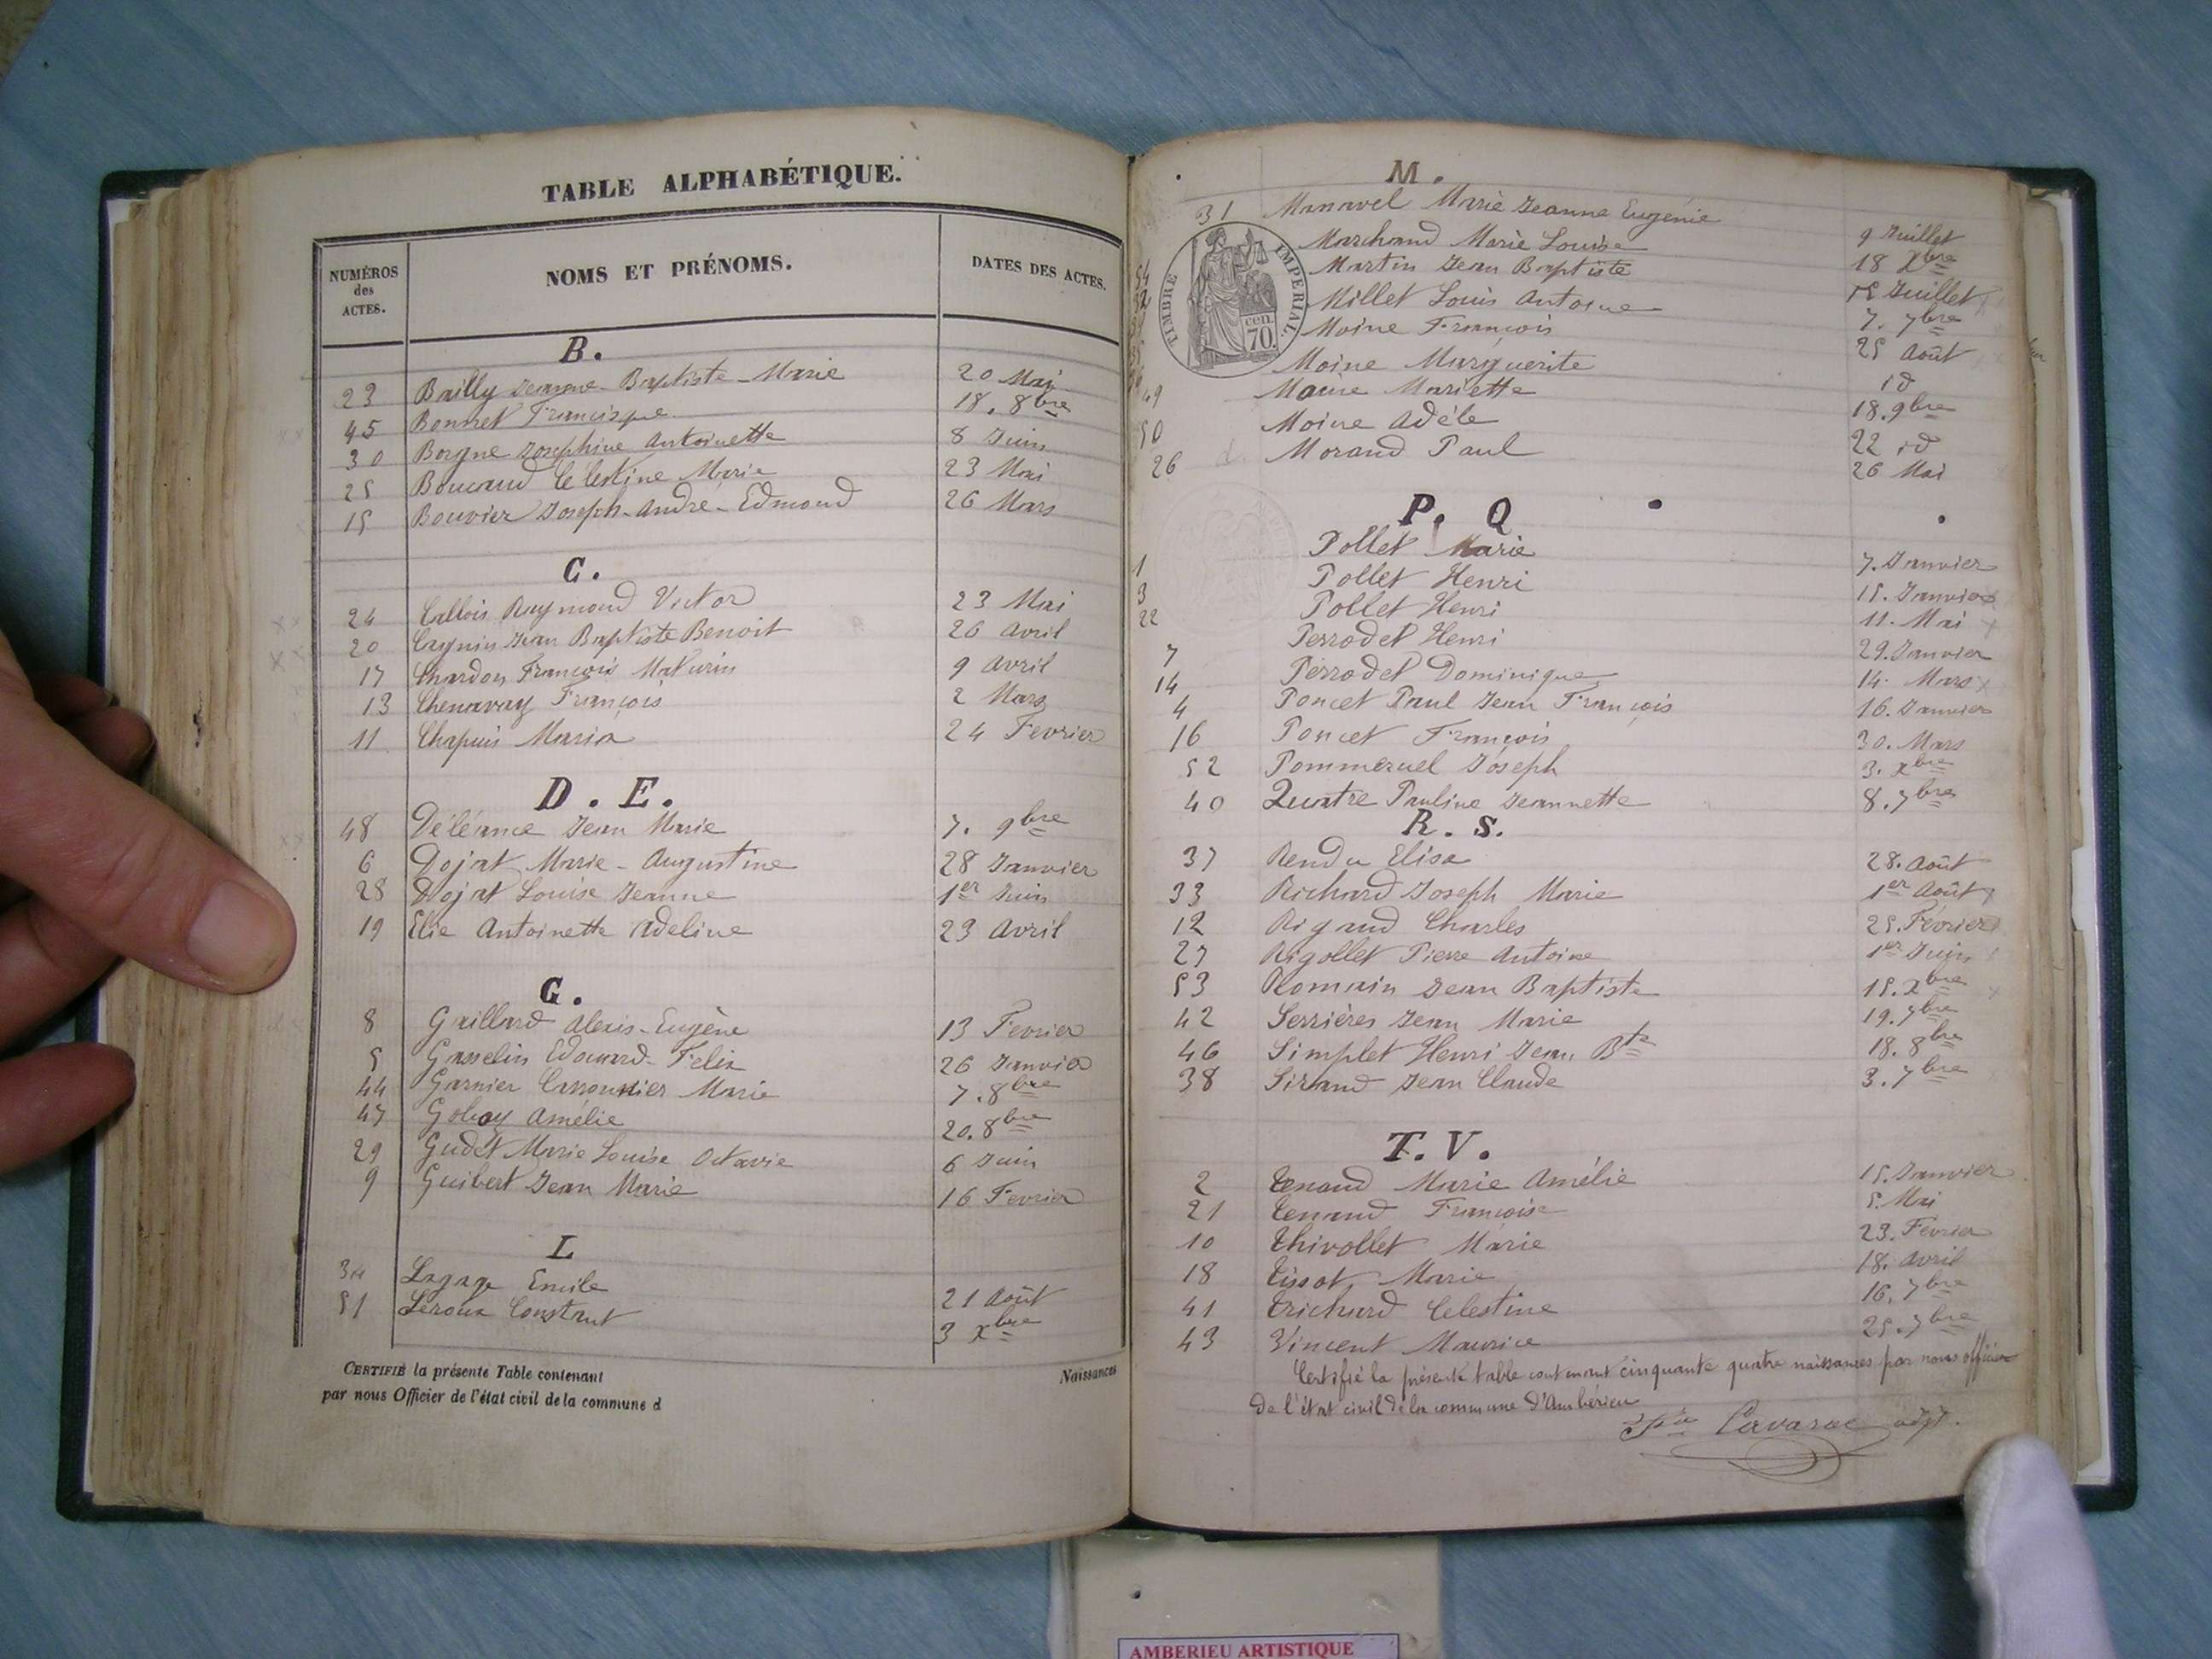 TABLE ALPHABÉTIQUE.
NUMÉROS des ACTES. NOMS ET PRÉNOMS. DATES DES ACTES.
B.
23 Bailly Jeanne-Baptiste-Marie 20 Mai
45 Bonnet Francisque 18. 8bre
30 Borgne Josephine Antoinette 8 Juin
25 Boucaud Célestine Marie 23 Mai
15 Bouvier Joseph-André-Edmond 26 Mars
C.
24 Callois Raymond Victor 23 Mai
20 Cagnin Jean Baptiste Benoit 26 Avril
17 Chardon François Mathurin 9 Avril
13 Chenavay François 2 Mars
11 Chapuis Maria 24 Fevrier
D. E.
48 Déléance Jean Marie 7. 9bre
6 Dojat Marie-Augustine 28 Janvier
28 Dojat Louise Jeanne 1er Juin
19 Elie Antoinette Adeline 23 Avril
G.
8 Gaillard Alexis-Eugène 13 Fevrier
5 Gasselin Edouard-Felix 26 Janvier
44 Garnier Marie 7. 8bre
47 Amélie 20. 8bre
29 Gudet Marie Louise Octavie 6 Juin
9 Guibert Jean Marie 16 Fevrier
L
Lagage Emile 21 Août
51 Leroux Constant 3 Xbre
CERTIFIÉ la présente Table contenant Naissances
par nous Officier de l'état civil de la commune d
M.
31 Manavel Marie Jeanne Eugénie 9 Juillet
54 Marchand Marie Louise 18 Xbre
32 Martin Jean Baptiste 15 Juillet
Millet Louis Antoine 7. 7bre
Moine François 25 Août
Moine Marguerite id
49 Moine Mariette 18. 9bre
50 Moine Adéle 22 id
26 Morand Paul 26 Mai
TIMBRE IMPERIAL.
70 cen.
P. Q
1 Pollet Marie 7. Janvier
3 Pollet Henri 15. Janvier
22 Pollet Henri 11. Mai
7 Perrodet Henri 29. Janvier
14 Perrodet Dominique 14. Mars
4 Poncet Paul Jean François 16. Janvier
16 Poncet François 30. Mars
52 Pommeruel Joseph 3. Xbre
40 Quatre Pauline Jeannette 8. 7bre
R. S.
37 Rendu Elisa 28. Août
33 Richard Joseph Marie 1er Août
12 Rigaud Charles 25. Février
27 Rigollet Pierre Antoine 1er Juin
53 Romain Jean Baptiste 15. Xbre
42 Serrières Jean Marie 19. 7bre
46 Simplet Henri Jean Bte 18. 8bre
38 Sirand Jean Claude 3. 7bre
T. V.
2 Tenand Marie Amélie 15. Janvier
21 Tenand Françoise 5. Mai
10 Thivollet Marie 23. Février
18 Tissot Marie 18. Avril
41 Trichard Celestine 16. 7bre
43 Vincent Maurice 25. 7bre
Certifié la présente table contenant cinquante quatre naissances par nous officier
de l'état civil de la commune d'Ambérieu
adjt.
AMBERIEU ARTISTIQUE